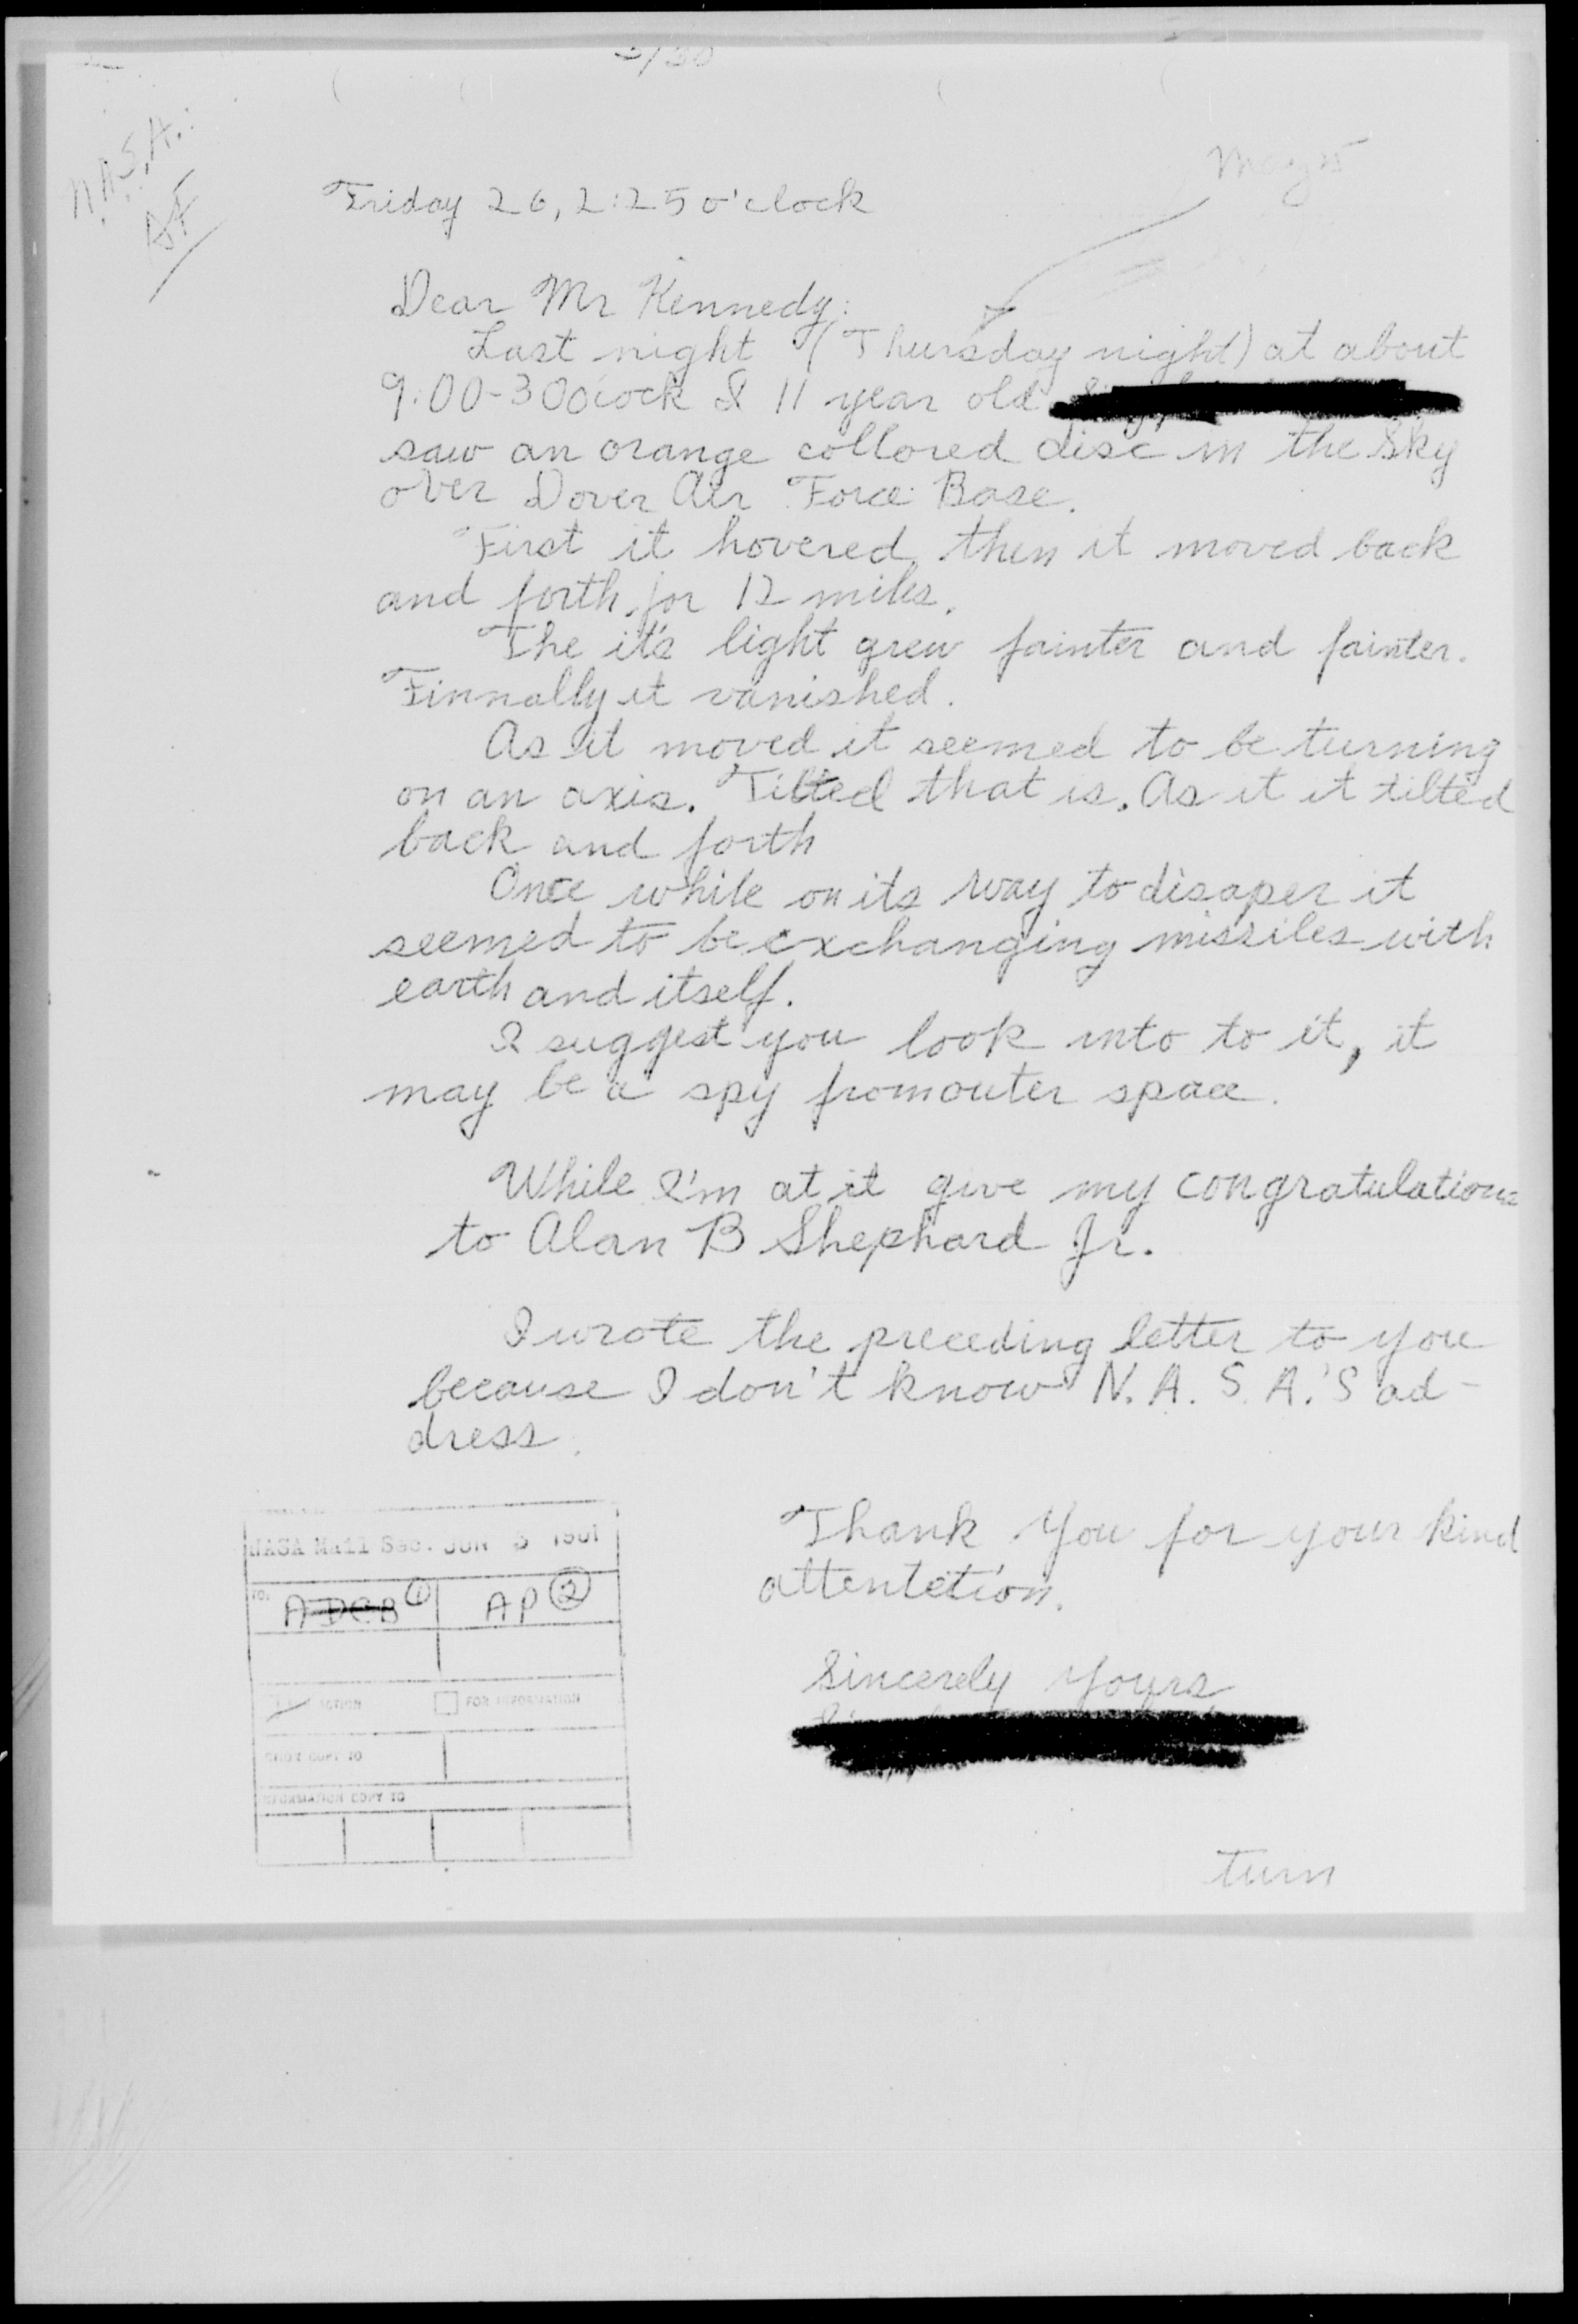 N.A.S.A.
AF
Friday 26, 2:25 o'clock
May 25
Dear Mr Kennedy:
Last night (Thursday night) at about
9:00-30 O'cock I 11 year old
saw an orange collored disc in the sky
over Dover Air Force Base.
First it hovered then it moved back
and forth for 12 miles.
The it's light grew fainter and fainter.
Finnally it vanished.
As it moved it seemed to be turning
on an axis. Tilted that is. As it it tilted
back and forth
Once while on its way to disaper it
seemed to be exchanging missiles with
earth and itself.
I suggest you look into to it, it
may be a spy from outer space.
While I'm at it give my congratulations
to Alan B Shephard Jr.
I wrote the preceding letter to you
because I don't know N.A.S.A.'S ad-
dress.
Thank You for your kind
attentetion.
Sincerely Yours
NASA Mail Sec. JUN 3 1961
TO:
ADCB ① AP ②
ACTION FOR INFORMATION
COPY TO
INFORMATION COPY TO
turn